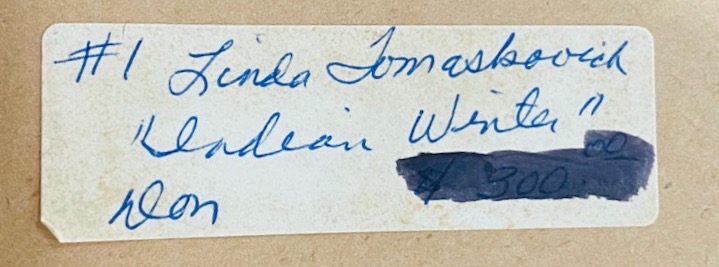 #1 Linda Tomaskovich
"Indian Winter"
$ 300.00
Don